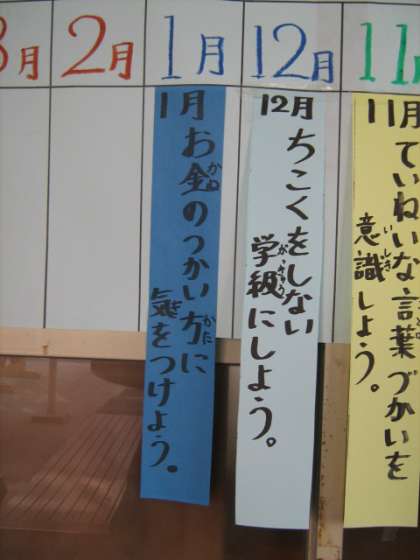 3月
2月
1月
12月
11月
11月
ていねいな言葉づかいを
意識しよう。
いしき
12月
ちこくをしない
学級にしよう。
がっきゅう
1月
お金のつかい方に
かね
かた
気をつけよう。